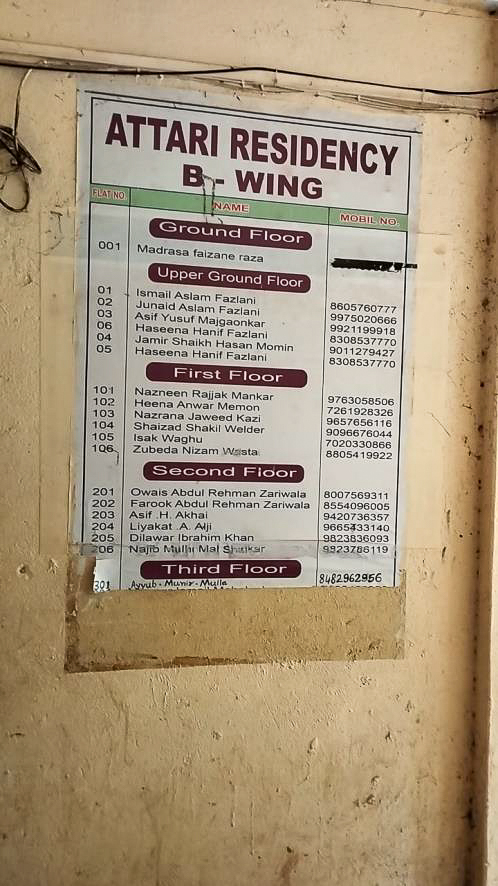 ATTARI RESIDENCY
B - WING
FLAT NO. NAME MOBIL NO.
Ground Floor
001 Madrasa faizane raza
Upper Ground Floor
01 Ismail Aslam Fazlani 8605760777
02 Junaid Aslam Fazlani 9975020666
03 Asif Yusuf Majgaonkar 9921199918
06 Haseena Hanif Fazlani 8308537770
04 Jamir Shaikh Hasan Momin 9011279427
05 Haseena Hanif Fazlani 8308537770
First Floor
101 Nazneen Rajjak Mankar 9763058506
102 Heena Anwar Memon 7261928326
103 Nazrana Jaweed Kazi 9657656116
104 Shaizad Shakil Welder 9096676044
105 Isak Waghu 7020330866
106 Zubeda Nizam Wasta 8805419922
Second Floor
201 Owais Abdul Rehman Zariwala 8007569311
202 Farook Abdul Rehman Zariwala 8554096005
203 Asif .H. Akhai 9420736357
204 Liyakat .A. Alji 9665433140
205 Dilawar Ibrahim Khan 9823836093
206 Najib Mulhi Mal 9823788119
Third Floor
301 Ayyub. Munir. Mulla 8482962956